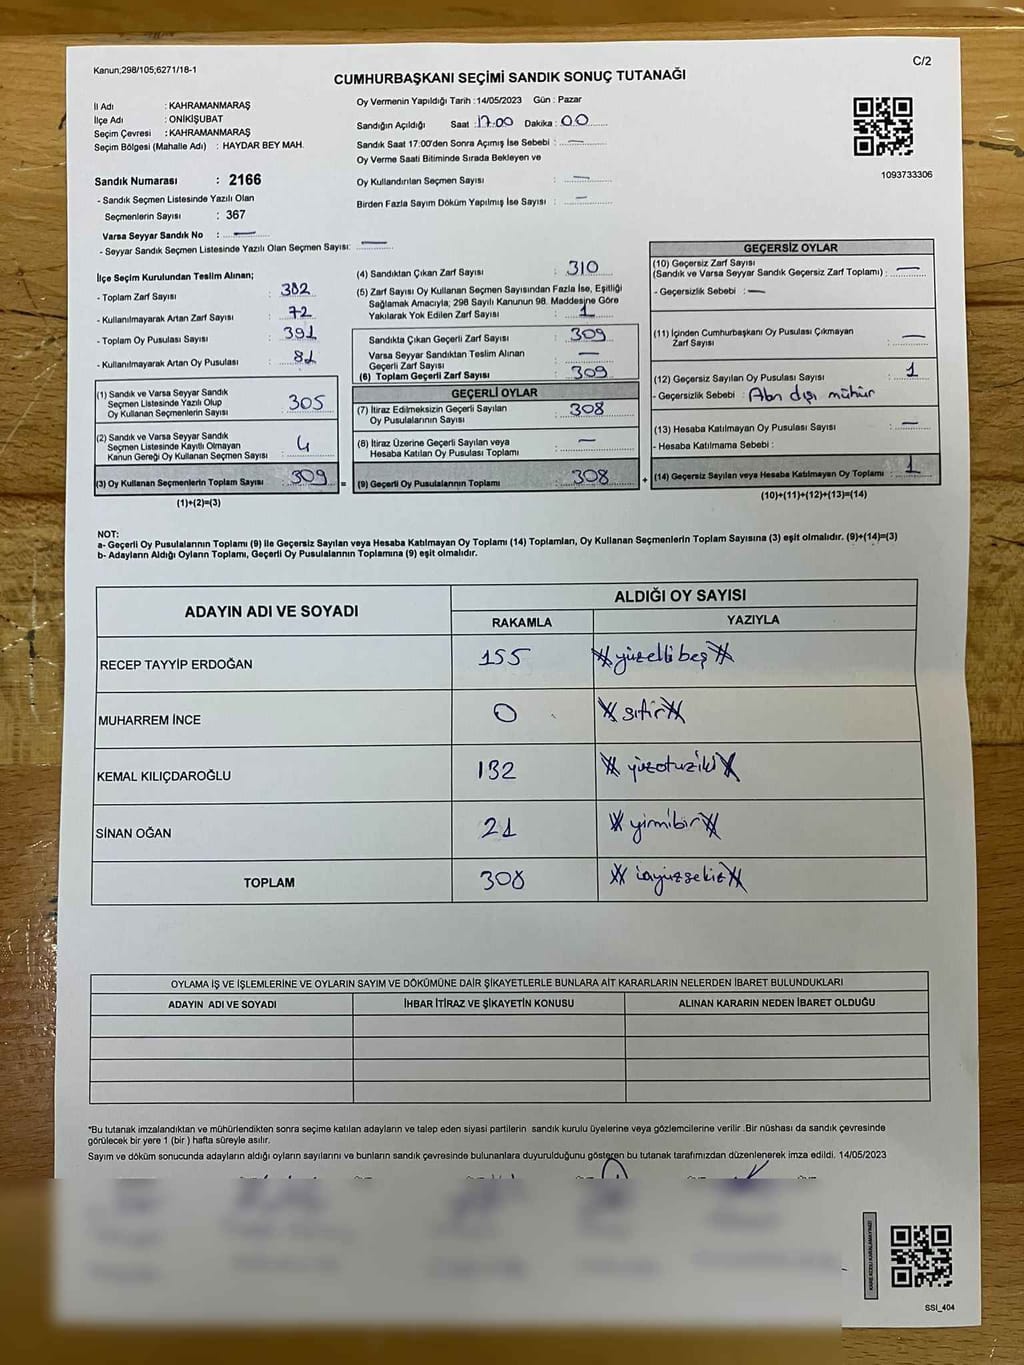 Kanun;298/105;6271/18-1
C/2
CUMHURBAŞKANI SEÇİMİ SANDIK SONUÇ TUTANAĞI
İl Adı : KAHRAMANMARAŞ
İlçe Adı : ONİKİŞUBAT
Seçim Çevresi : KAHRAMANMARAŞ
Seçim Bölgesi (Mahalle Adı) : HAYDAR BEY MAH.
Sandık Numarası : 2166
- Sandık Seçmen Listesinde Yazılı Olan
Seçmenlerin Sayısı : 367
Varsa Seyyar Sandık No : —
- Seyyar Sandık Seçmen Listesinde Yazılı Olan Seçmen Sayısı: —
Oy Vermenin Yapıldığı Tarih :14/05/2023 Gün : Pazar
Sandığın Açıldığı Saat :17.00 Dakika :00
Sandık Saat 17:00'den Sonra Açımış İse Sebebi : —
Oy Verme Saati Bitiminde Sırada Bekleyen ve
Oy Kullandırılan Seçmen Sayısı : —
Birden Fazla Sayım Döküm Yapılmış İse Sayısı : —
1093733306
İlçe Seçim Kurulundan Teslim Alınan;
- Toplam Zarf Sayısı : 382
- Kullanılmayarak Artan Zarf Sayısı : 72
- Toplam Oy Pusulası Sayısı : 391
- Kullanılmayarak Artan Oy Pusulası : 81
(1) Sandık ve Varsa Seyyar Sandık
Seçmen Listesinde Yazılı Olup
Oy Kullanan Seçmenlerin Sayısı : 305
(2) Sandık ve Varsa Seyyar Sandık
Seçmen Listesinde Kayıtlı Olmayan
Kanun Gereği Oy Kullanan Seçmen Sayısı : 4
(3) Oy Kullanan Seçmenlerin Toplam Sayısı : 309 =
(1)+(2)=(3)
(4) Sandıktan Çıkan Zarf Sayısı : 310
(5) Zarf Sayısı Oy Kullanan Seçmen Sayısından Fazla İse, Eşitliği
Sağlamak Amacıyla; 298 Sayılı Kanunun 98. Maddesine Göre
Yakılarak Yok Edilen Zarf Sayısı : 1
Sandıkta Çıkan Geçerli Zarf Sayısı : 309
Varsa Seyyar Sandıktan Teslim Alınan
Geçerli Zarf Sayısı : —
(6) Toplam Geçerli Zarf Sayısı : 309
GEÇERLİ OYLAR
(7) İtiraz Edilmeksizin Geçerli Sayılan
Oy Pusulalarının Sayısı : 308
(8) İtiraz Üzerine Geçerli Sayılan veya
Hesaba Katılan Oy Pusulası Toplamı : —
(9) Geçerli Oy Pusulalarının Toplamı : 308 +
GEÇERSİZ OYLAR
(10) Geçersiz Zarf Sayısı
(Sandık ve Varsa Seyyar Sandık Geçersiz Zarf Toplamı) : —
- Geçersizlik Sebebi : —
(11) İçinden Cumhurbaşkanı Oy Pusulası Çıkmayan
Zarf Sayısı : —
(12) Geçersiz Sayılan Oy Pusulası Sayısı : 1
- Geçersizlik Sebebi : Alan dışı mühür
(13) Hesaba Katılmayan Oy Pusulası Sayısı : —
- Hesaba Katılmama Sebebi :
(14) Geçersiz Sayılan veya Hesaba Katılmayan Oy Toplamı : 1
(10)+(11)+(12)+(13)=(14)
NOT:
a- Geçerli Oy Pusulalarının Toplamı (9) ile Geçersiz Sayılan veya Hesaba Katılmayan Oy Toplamı (14) Toplamları, Oy Kullanan Seçmenlerin Toplam Sayısına (3) eşit olmalıdır. (9)+(14)=(3)
b- Adayların Aldığı Oyların Toplamı, Geçerli Oy Pusulalarının Toplamına (9) eşit olmalıdır.
ADAYIN ADI VE SOYADI ALDIĞI OY SAYISI
RAKAMLA YAZIYLA
RECEP TAYYİP ERDOĞAN 155 yüzellibeş
MUHARREM İNCE 0 sıfır
KEMAL KILIÇDAROĞLU 132 yüzotuziki
SİNAN OĞAN 21 yirmibir
TOPLAM 308 üçyüzsekiz
OYLAMA İŞ VE İŞLEMLERİNE VE OYLARIN SAYIM VE DÖKÜMÜNE DAİR ŞİKAYETLERLE BUNLARA AİT KARARLARIN NELERDEN İBARET BULUNDUKLARI
ADAYIN ADI VE SOYADI İHBAR İTİRAZ VE ŞİKAYETİN KONUSU ALINAN KARARIN NEDEN İBARET OLDUĞU
*Bu tutanak imzalandıktan ve mühürlendikten sonra seçime katılan adayların ve talep eden siyasi partilerin sandık kurulu üyelerine veya gözlemcilerine verilir .Bir nüshası da sandık çevresinde
görülecek bir yere 1 (bir ) hafta süreyle asılır.
Sayım ve döküm sonucunda adayların aldığı oyların sayılarını ve bunların sandık çevresinde bulunanlara duyurulduğunu gösteren bu tutanak tarafımızdan düzenlenerek imza edildi. 14/05/2023
KARE KODU KARALAMAYINIZ!
SSI_404